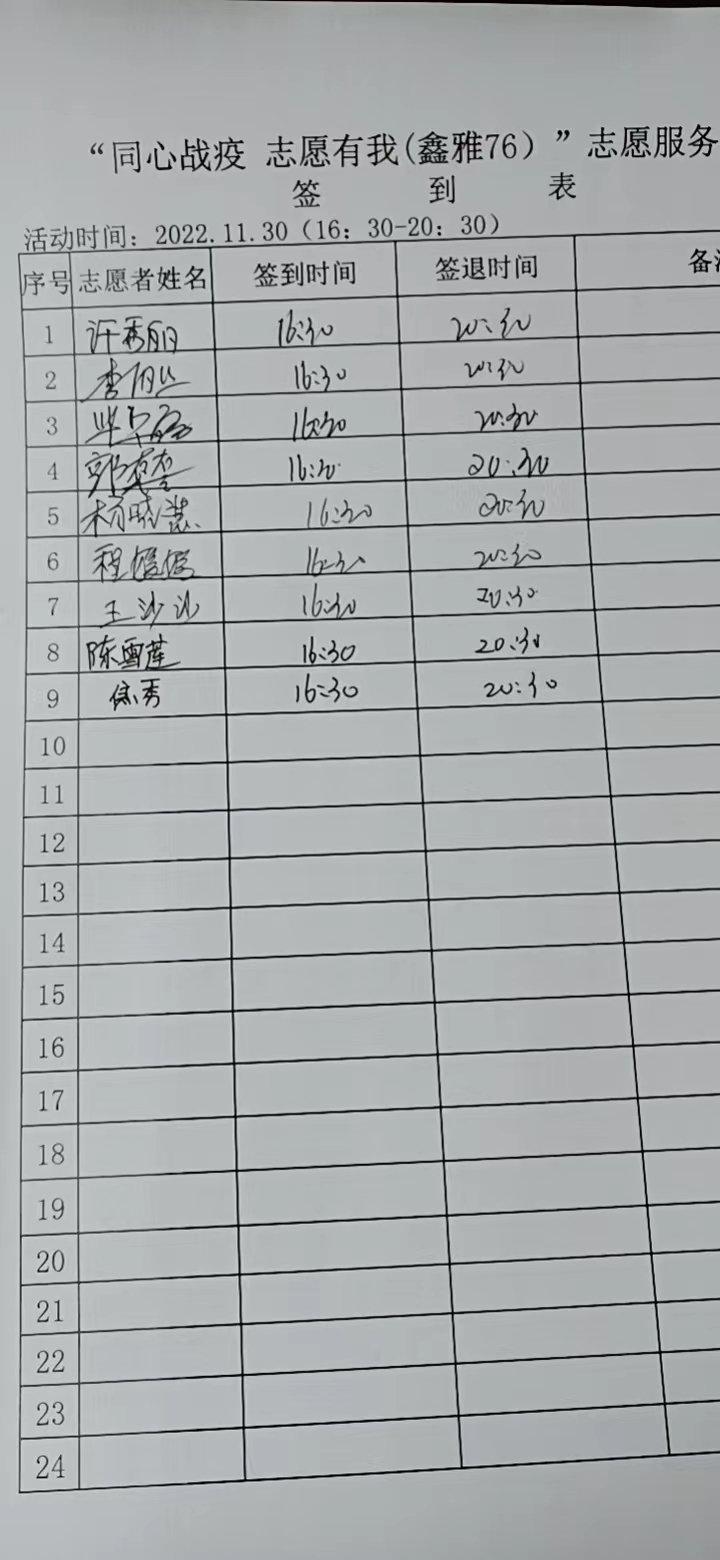 “同心战疫 志愿有我(鑫雅76）”志愿服务
签 到 表
活动时间：2022.11.30（16：30-20：30）
序号 志愿者姓名 签到时间 签退时间 备注
1 许秀丽 16:30 20:30
2 李 16:30 20:30
3 毕 16:30 20:30
4 郭 16:30 20:30
5 杨晓慧 16:30 20:30
6 程媛媛 16:30 20:30
7 王沙沙 16:30 20:30
8 陈雪莲 16:30 20:30
9 秀 16:30 20:30
10
11
12
13
14
15
16
17
18
19
20
21
22
23
24